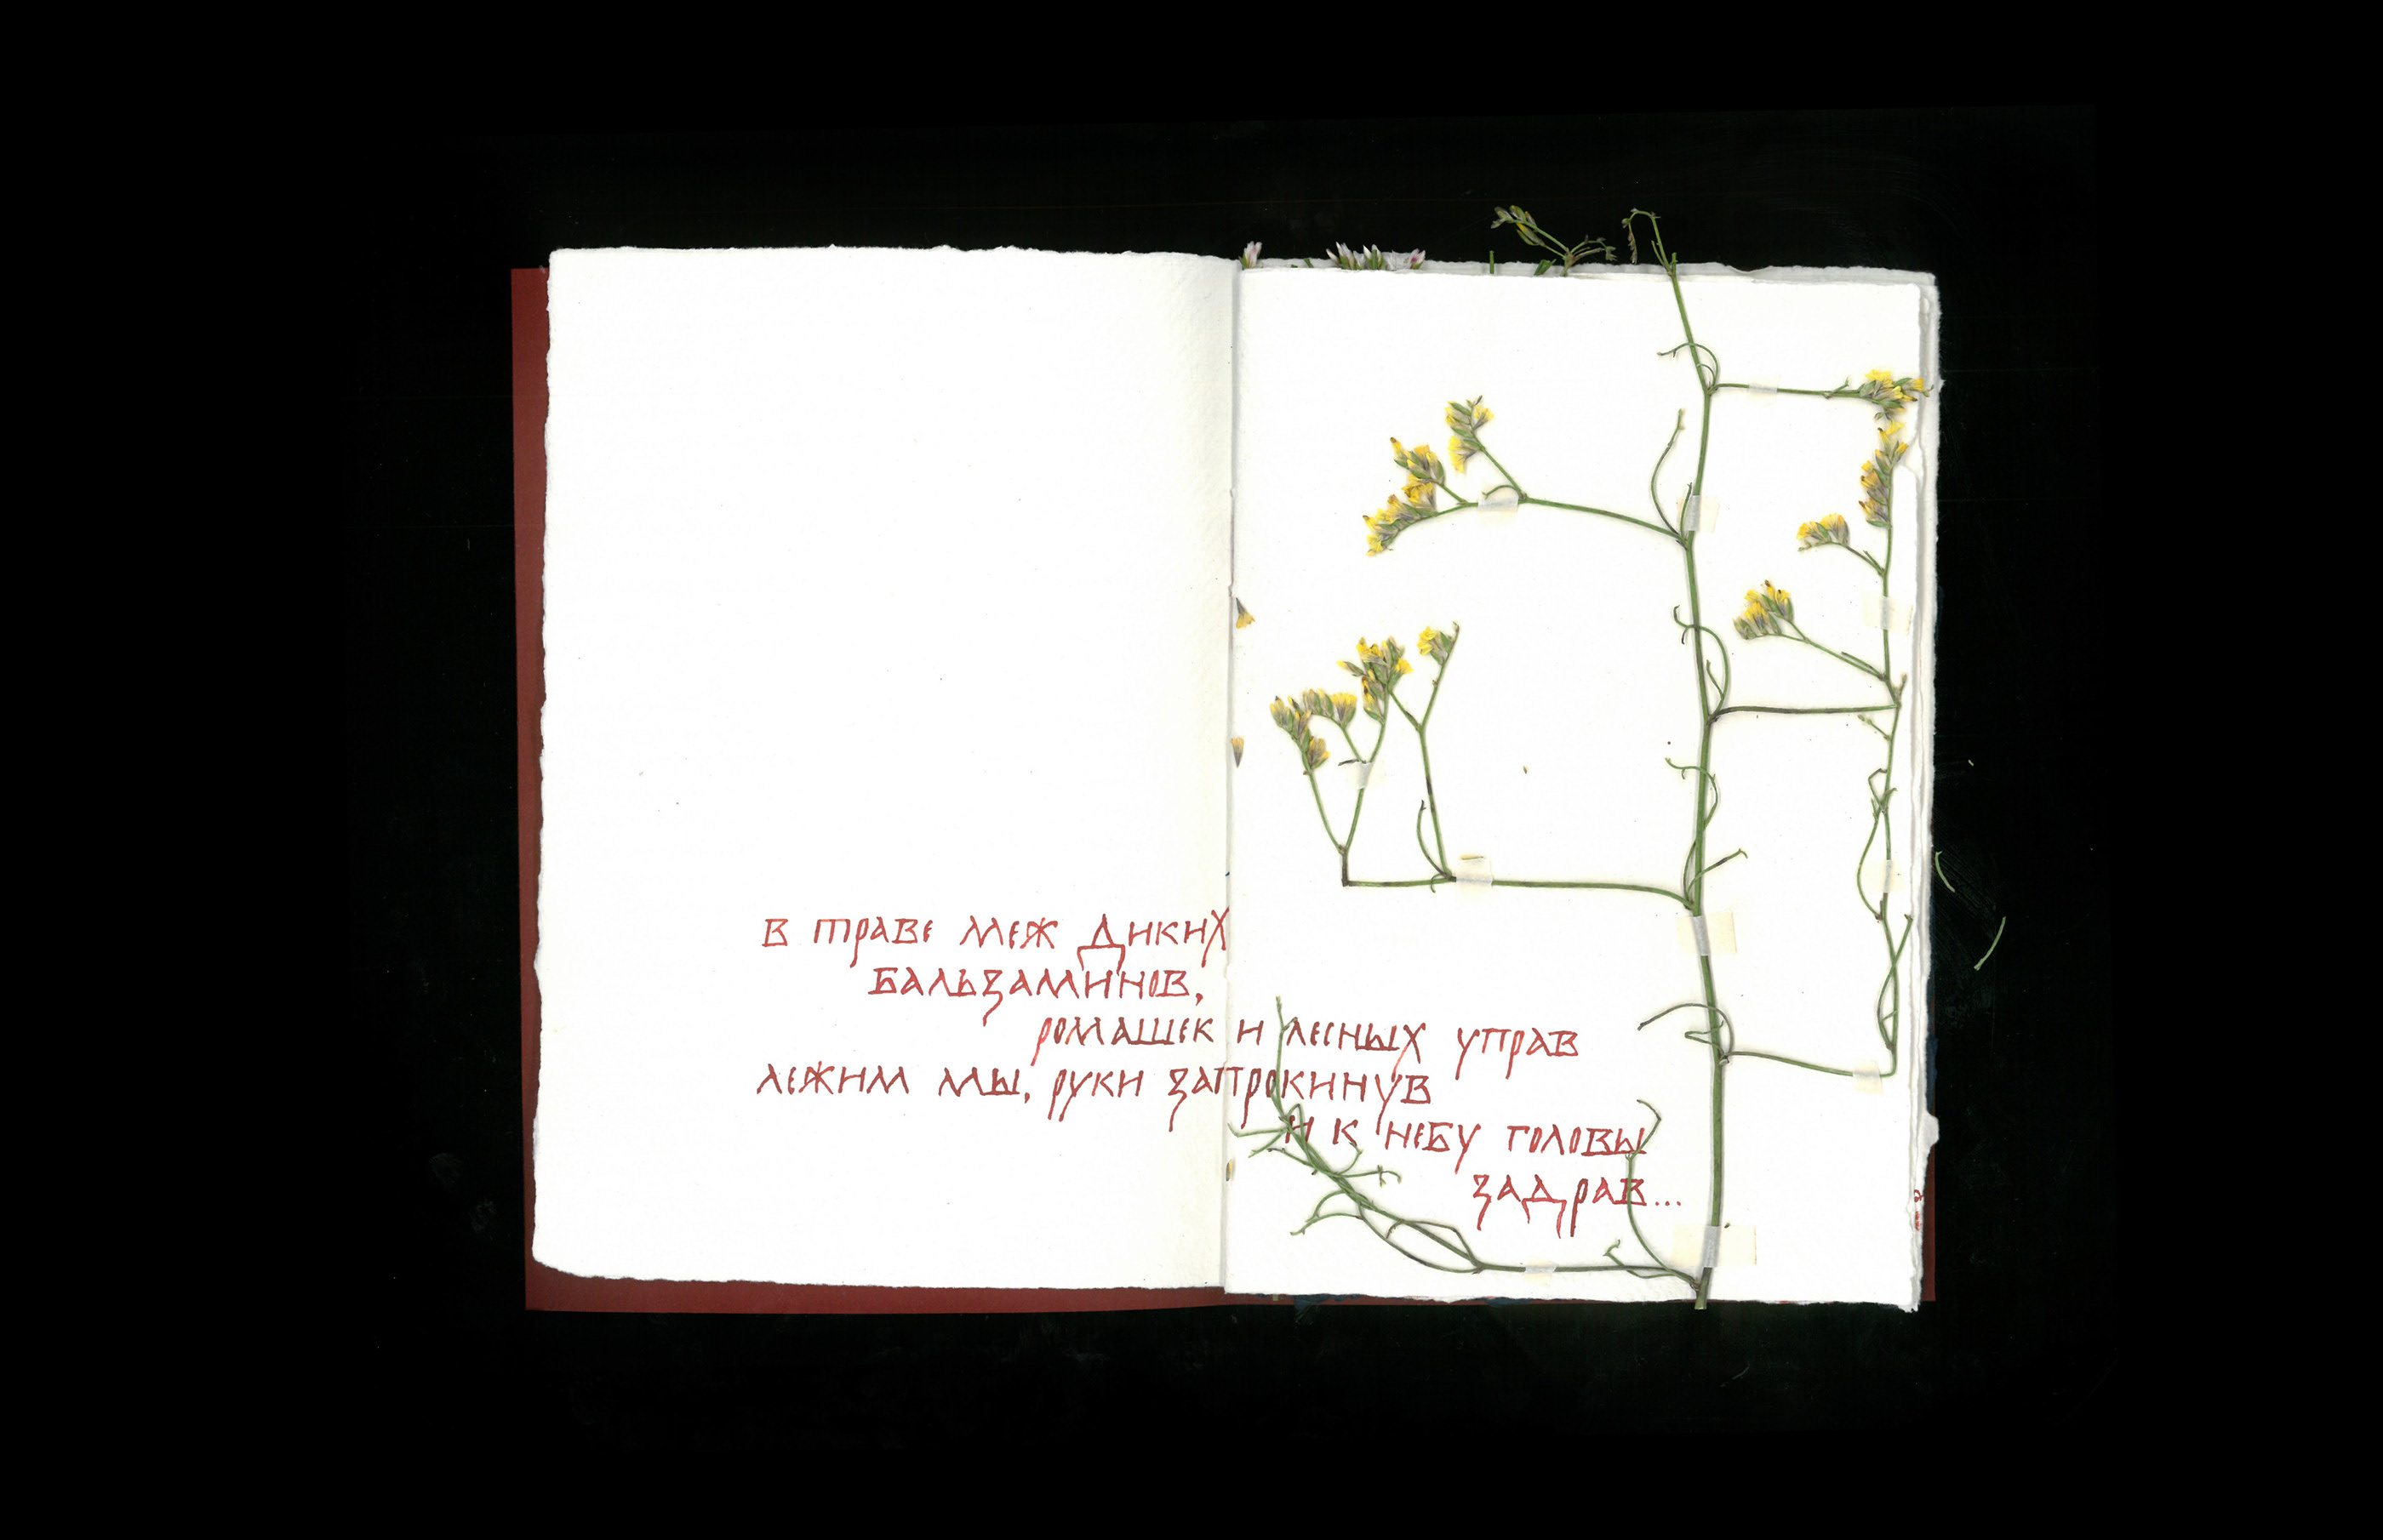 в траве меж диких
бальзаминов,
ромашек и лесных управ
лежим мы, руки запрокинув
и к небу головы
задрав...